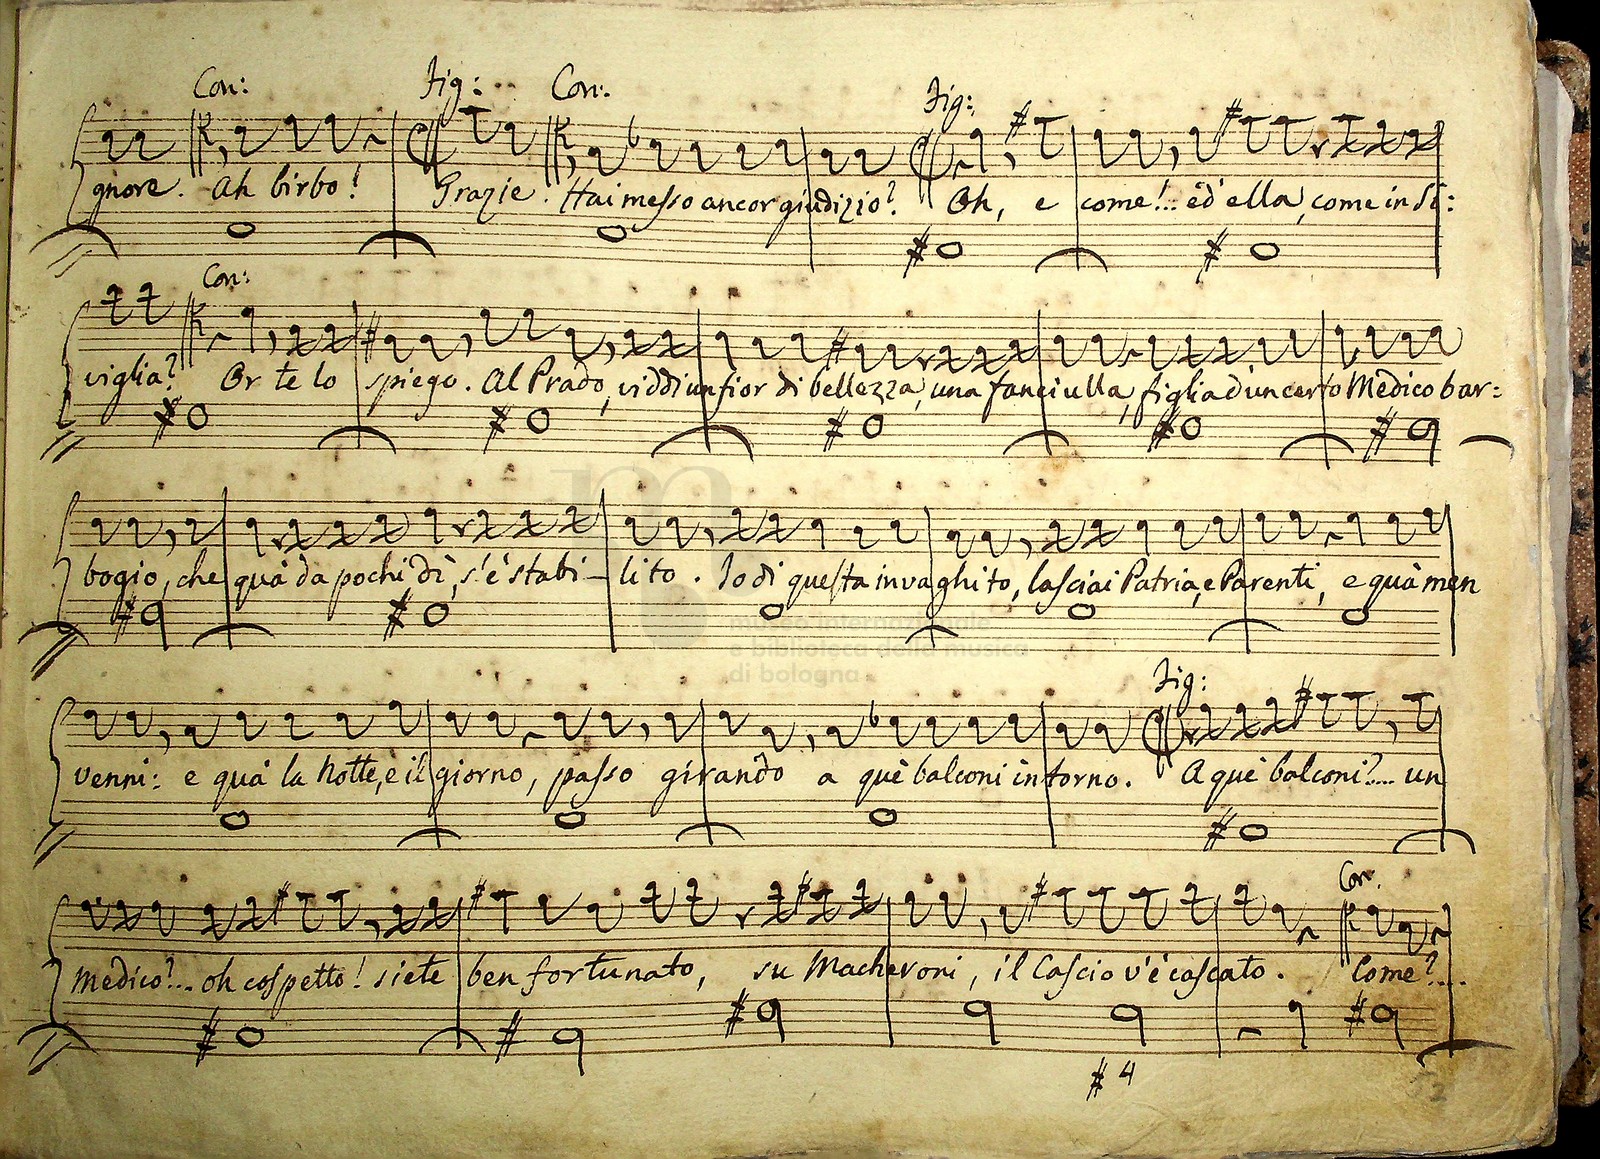 Con: Fig: Con: Fig:
gnore. Ah birbo! Grazie. Hai messo ancor giudizio? Oh, e come!.. ed' ella, come in Si:
Con:
viglia? Or te lo spiego. Al Prado, viddi un fior di bellezza, una fanciulla, figlia d'un certo Medico bar:
bogio, che quà da pochi dì, s'è stabi-lito. Io di questa invaghito, lasciai Patria, e Parenti, e quà men
museo internazionale
e biblioteca della musica
di bologna
Fig:
venni: e quà la Notte, e il giorno, passo girando a què balconi intorno. A què balconi?.... un
Con.
Medico?... oh cospetto! siete ben fortunato, su Macheroni, il Cascio v'è cascato. Come?....
# 4